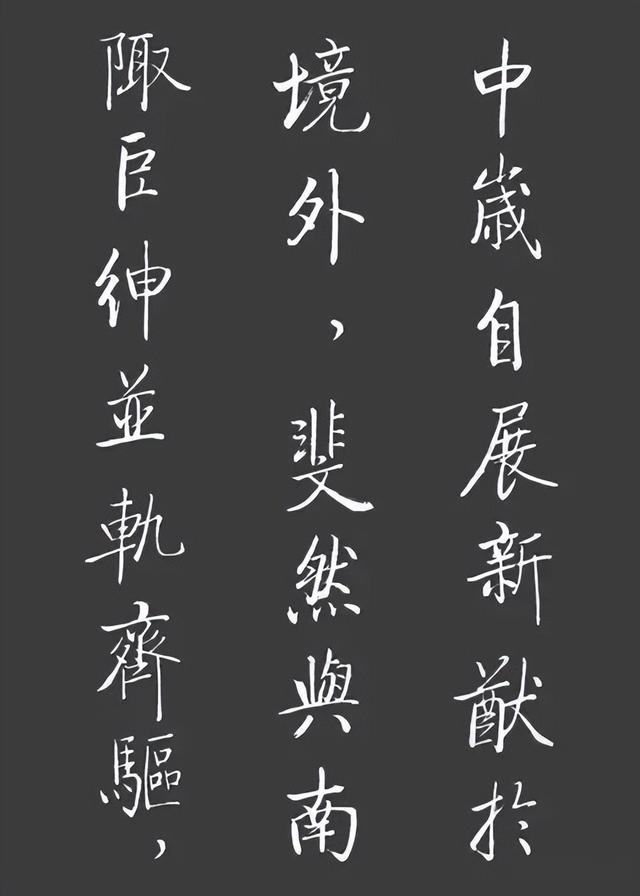 中歲自展新猷於
境外,斐然與南
陬臣紳並軌齊驅,